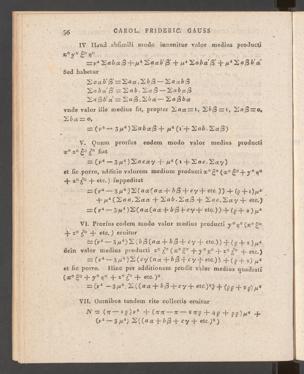 56 CAROL. FRIDERIC. GAUSS
IV. Haud absimili modo inuenitur valor medius producti
x⁰y⁰ξ⁰η⁰
= ν⁴Σabαβ + μ⁴Σaαb′β′ + μ⁴Σabα′β′ + μ⁴Σaβb′α′
Sed habetur
Σaαb′β′ = Σaα.Σbβ − Σaαbβ
Σabα′β′ = Σab.Σαβ − Σabαβ
Σaβb′α′ = Σaβ.Σbα − Σaβbα
vnde valor ille medius fit, propter Σaα = 1, Σbβ = 1, Σaβ = 0,
Σbα = 0,
= (ν⁴ − 3μ⁴)Σabαβ + μ⁴(1 + Σab.Σαβ)
V. Quum prorsus eodem modo valor medius producti
x⁰z⁰ξ⁰ζ⁰ fiat
= (ν⁴ − 3μ⁴)Σacαγ + μ⁴(1 + Σac.Σαγ)
et sic porro, additio valorem medium producti x⁰ξ⁰(x⁰ξ⁰ + y⁰η⁰
+ z⁰ζ⁰ + etc.) suppeditat
= (ν⁴ − 3μ⁴)Σ(aα(aα + bβ + cγ + etc.)) + (ϱ + 1)μ⁴
+ μ⁴(Σaa.Σαα + Σab.Σαβ + Σac.Σαγ + etc.)
= (ν⁴ − 3μ⁴)Σ(aα(aα + bβ + cγ + etc.)) + (ϱ + 2)μ⁴
VI. Prorsus eodem modo valor medius producti y⁰η⁰(x⁰ξ⁰
+ z⁰ζ⁰ + etc.) eruitur
= (ν⁴ − 3μ⁴)Σ(bβ(aα + bβ + cγ + etc.)) + (ϱ + 2)μ⁴
dein valor medius producti z⁰ζ⁰(x⁰ξ⁰ + y⁰η⁰ + z⁰ζ⁰ + etc.)
= (ν⁴ − 3μ⁴)Σ(cγ(aα + bβ + cγ + etc.)) + (ϱ + 2)μ⁴
et sic porro. Hinc per additionem prodit valor medius quadrati
(x⁰ξ⁰ + y⁰η⁰ + z⁰ζ⁰ + etc.)²
= (ν⁴ − 3μ⁴)Σ((aα + bβ + cγ + etc.)²) + (ϱϱ + 2ϱ)μ⁴
VII. Omnibus tandem rite collectis eruitur
N = (π − 2ϱ)ν⁴ + (ππ − π − 2πϱ + 4ϱ + ϱϱ)μ⁴ +
(ν⁴ − 3μ⁴)Σ((aα + bβ + cγ + etc.)²)